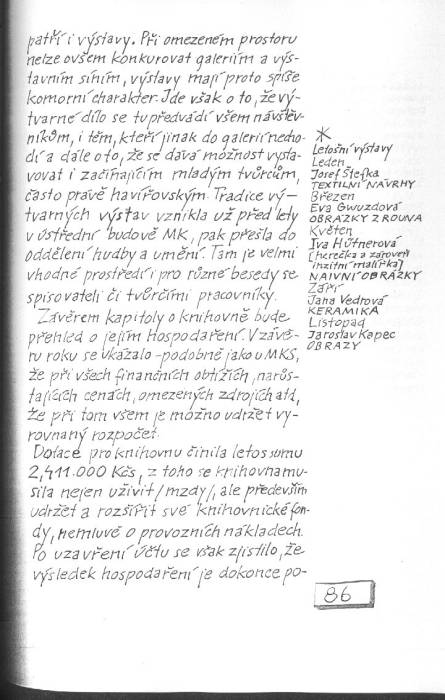 patří i výstavy. Při omezeném prostoru
nelze ovšem konkurovat galeriím a výs-
tavním síním, výstavy mají proto spíše
komorní charakter. Jde však o to, že vý-
tvarné dílo se tu předvádí všem návštěv-
níkům, i těm, kteří jinak do galerií necho-
dí a dále o to, že se dává možnost vysta-
vovat i začínajícím mladým tvůrcům,
často právě havířovským. Tradice vý-
tvarných výstav vznikla už před lety
v ústřední budově MK, pak přešla do
oddělení hudby a umění. Tam je velmi
vhodné prostředí i pro různé besedy se
spisovateli či tvůrčími pracovníky.
Závěrem kapitoly o knihovně bude
přehled o jejím hospodaření. V závě-
ru roku se ukázalo - podobně jako u MKS,
že při všech finančních obtížích, narůs-
tajících cenách, omezených zdrojích atd,
že při tom všem je možno udržet vy-
rovnaný rozpočet.
Dotace pro knihovnu činila letos sumu
2,411.000 Kčs, z toho se knihovna mu-
sila nejen uživit /mzdy/, ale především
udržet a rozšířit své knihovnické fon-
dy, nemluvě o provozních nákladech.
Po uzavření účtu se však zjistilo, že
výsledek hospodaření je dokonce po-
*
Letošní výstavy
Leden
Josef Štefka
TEXTILNÍ NÁVRHY
Březen
Eva Gwuzdová
OBRÁZKY Z ROUNA
Květen
Iva Hüttnerová
(herečka a zároveň
inzitní malířka)
NAIVNÍ OBRÁZKY
Září
Jana Vedrová
KERAMIKA
Listopad
Jaroslav Kapec
OBRAZY
86